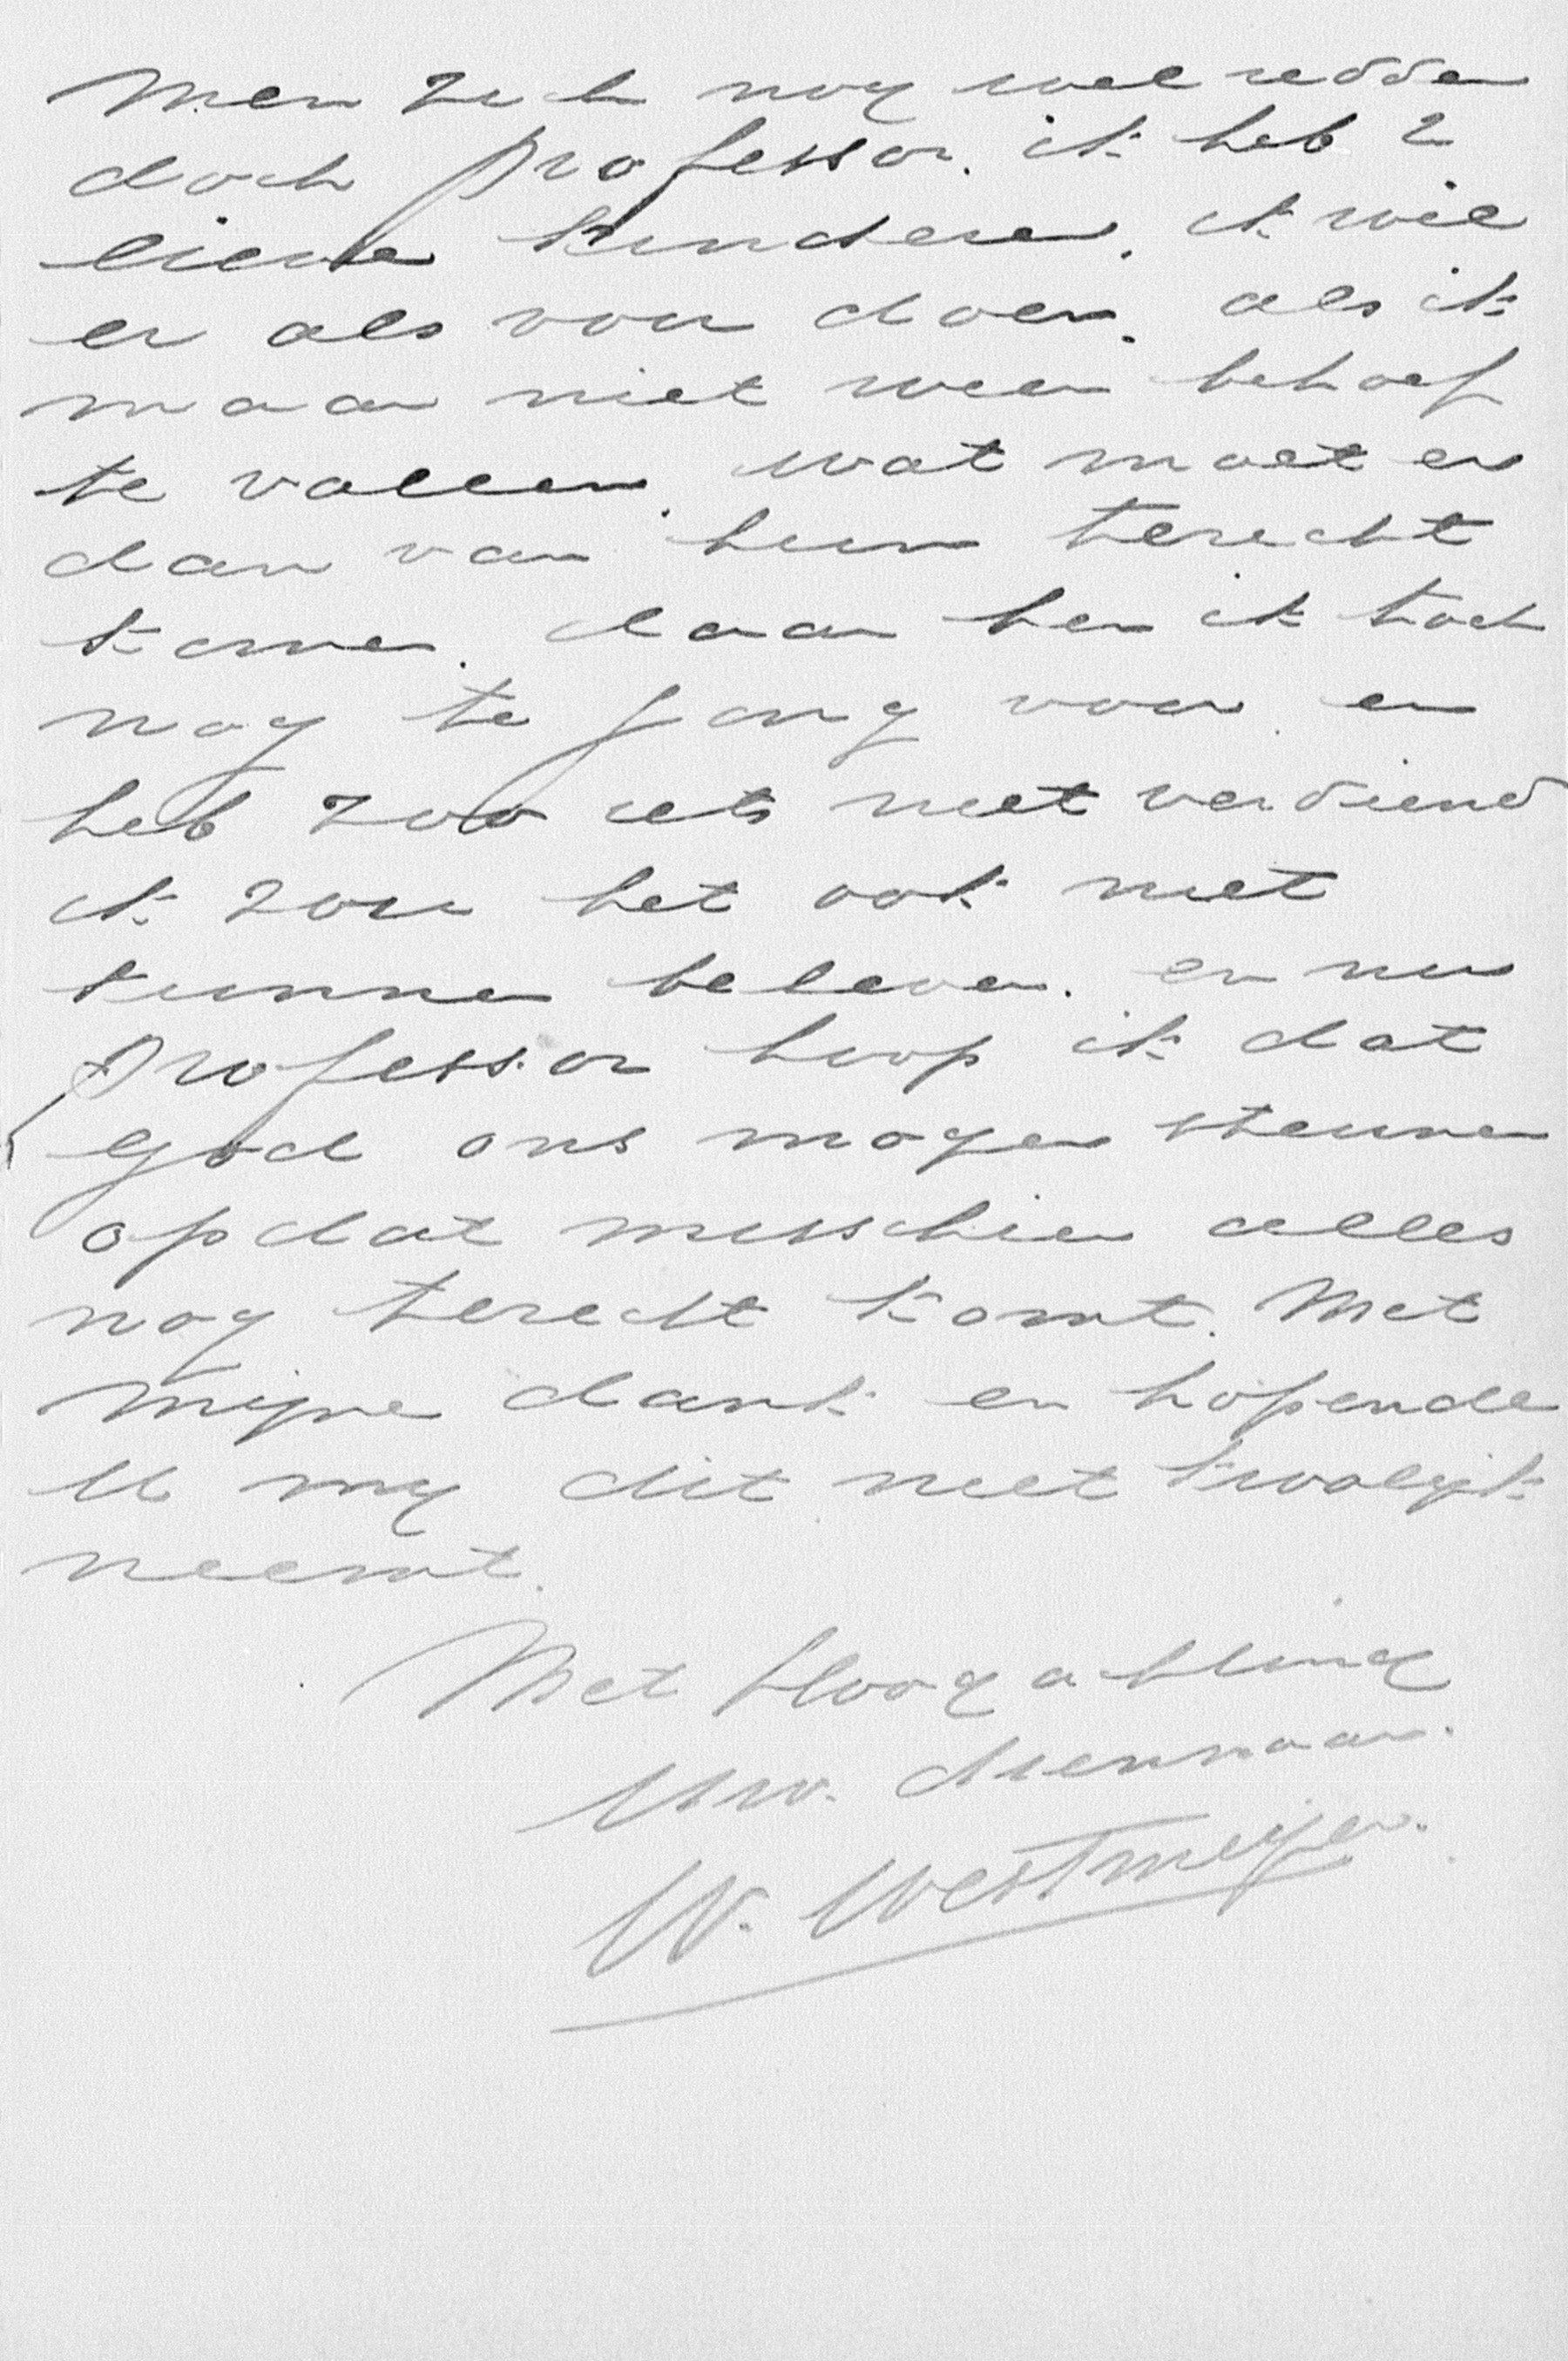 Men zich nog wel redden
doch Professor. ik heb 2
lieve kinderen. ik wil
er als voor doen. als ik
maar niet weer behoef
te vallen. wat moet er
dan van hun terecht
komen. daar ben ik toch
nog te jong voor en
heb zoo iets niet verdiend
ik zou het ook niet
kunnen beleven. en nu
Professor hoop ik dat
God ons mogen steunen
opdat misschien alles
nog terecht komt. Met
mijne dank en hopende
U my dit niet kwalijk
neemt.
Met Hoogachting
Uw. dienaar.
W. Westmeijer.